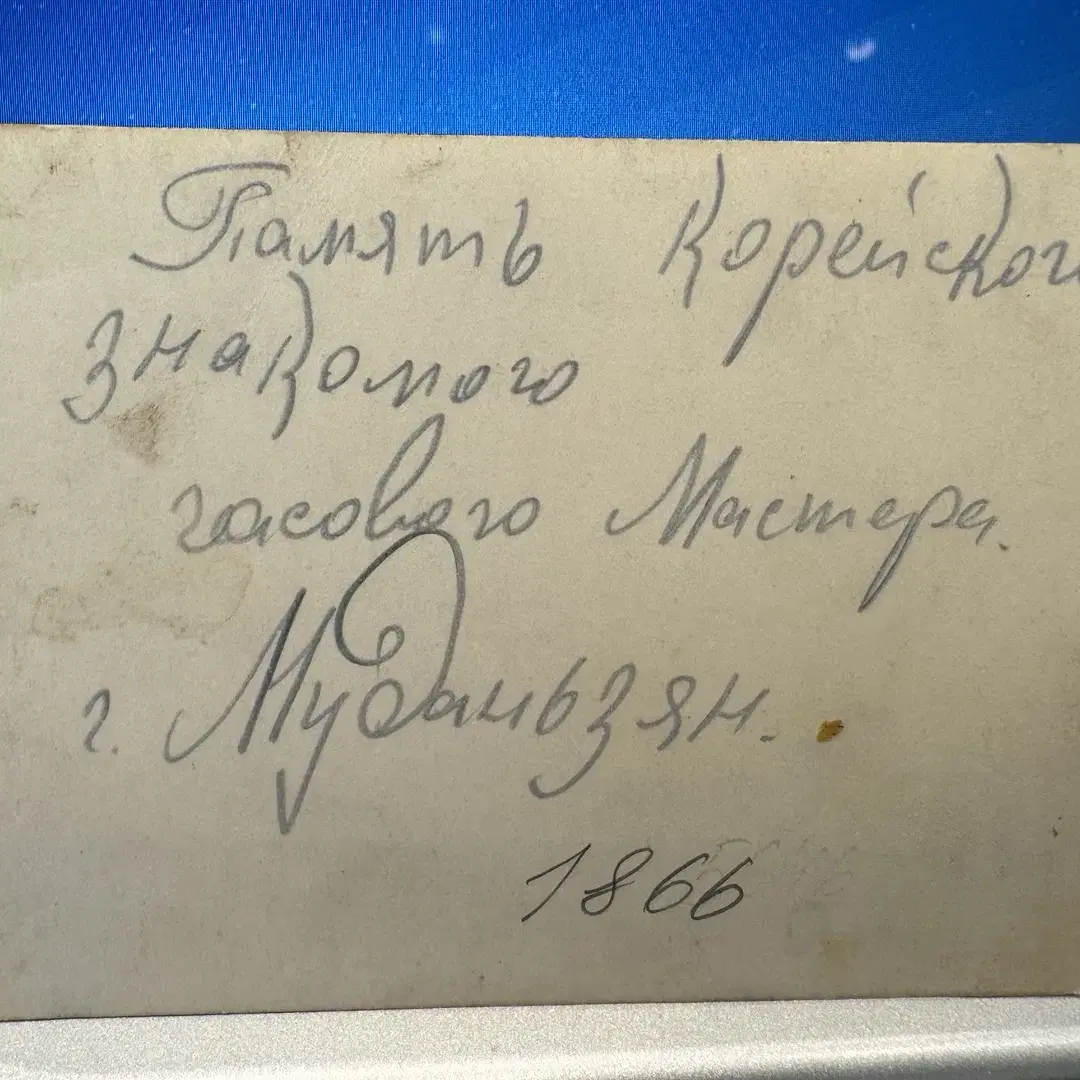 Память Корейского
знакомого
часового Мастера.
г. Муданьзян.
1866